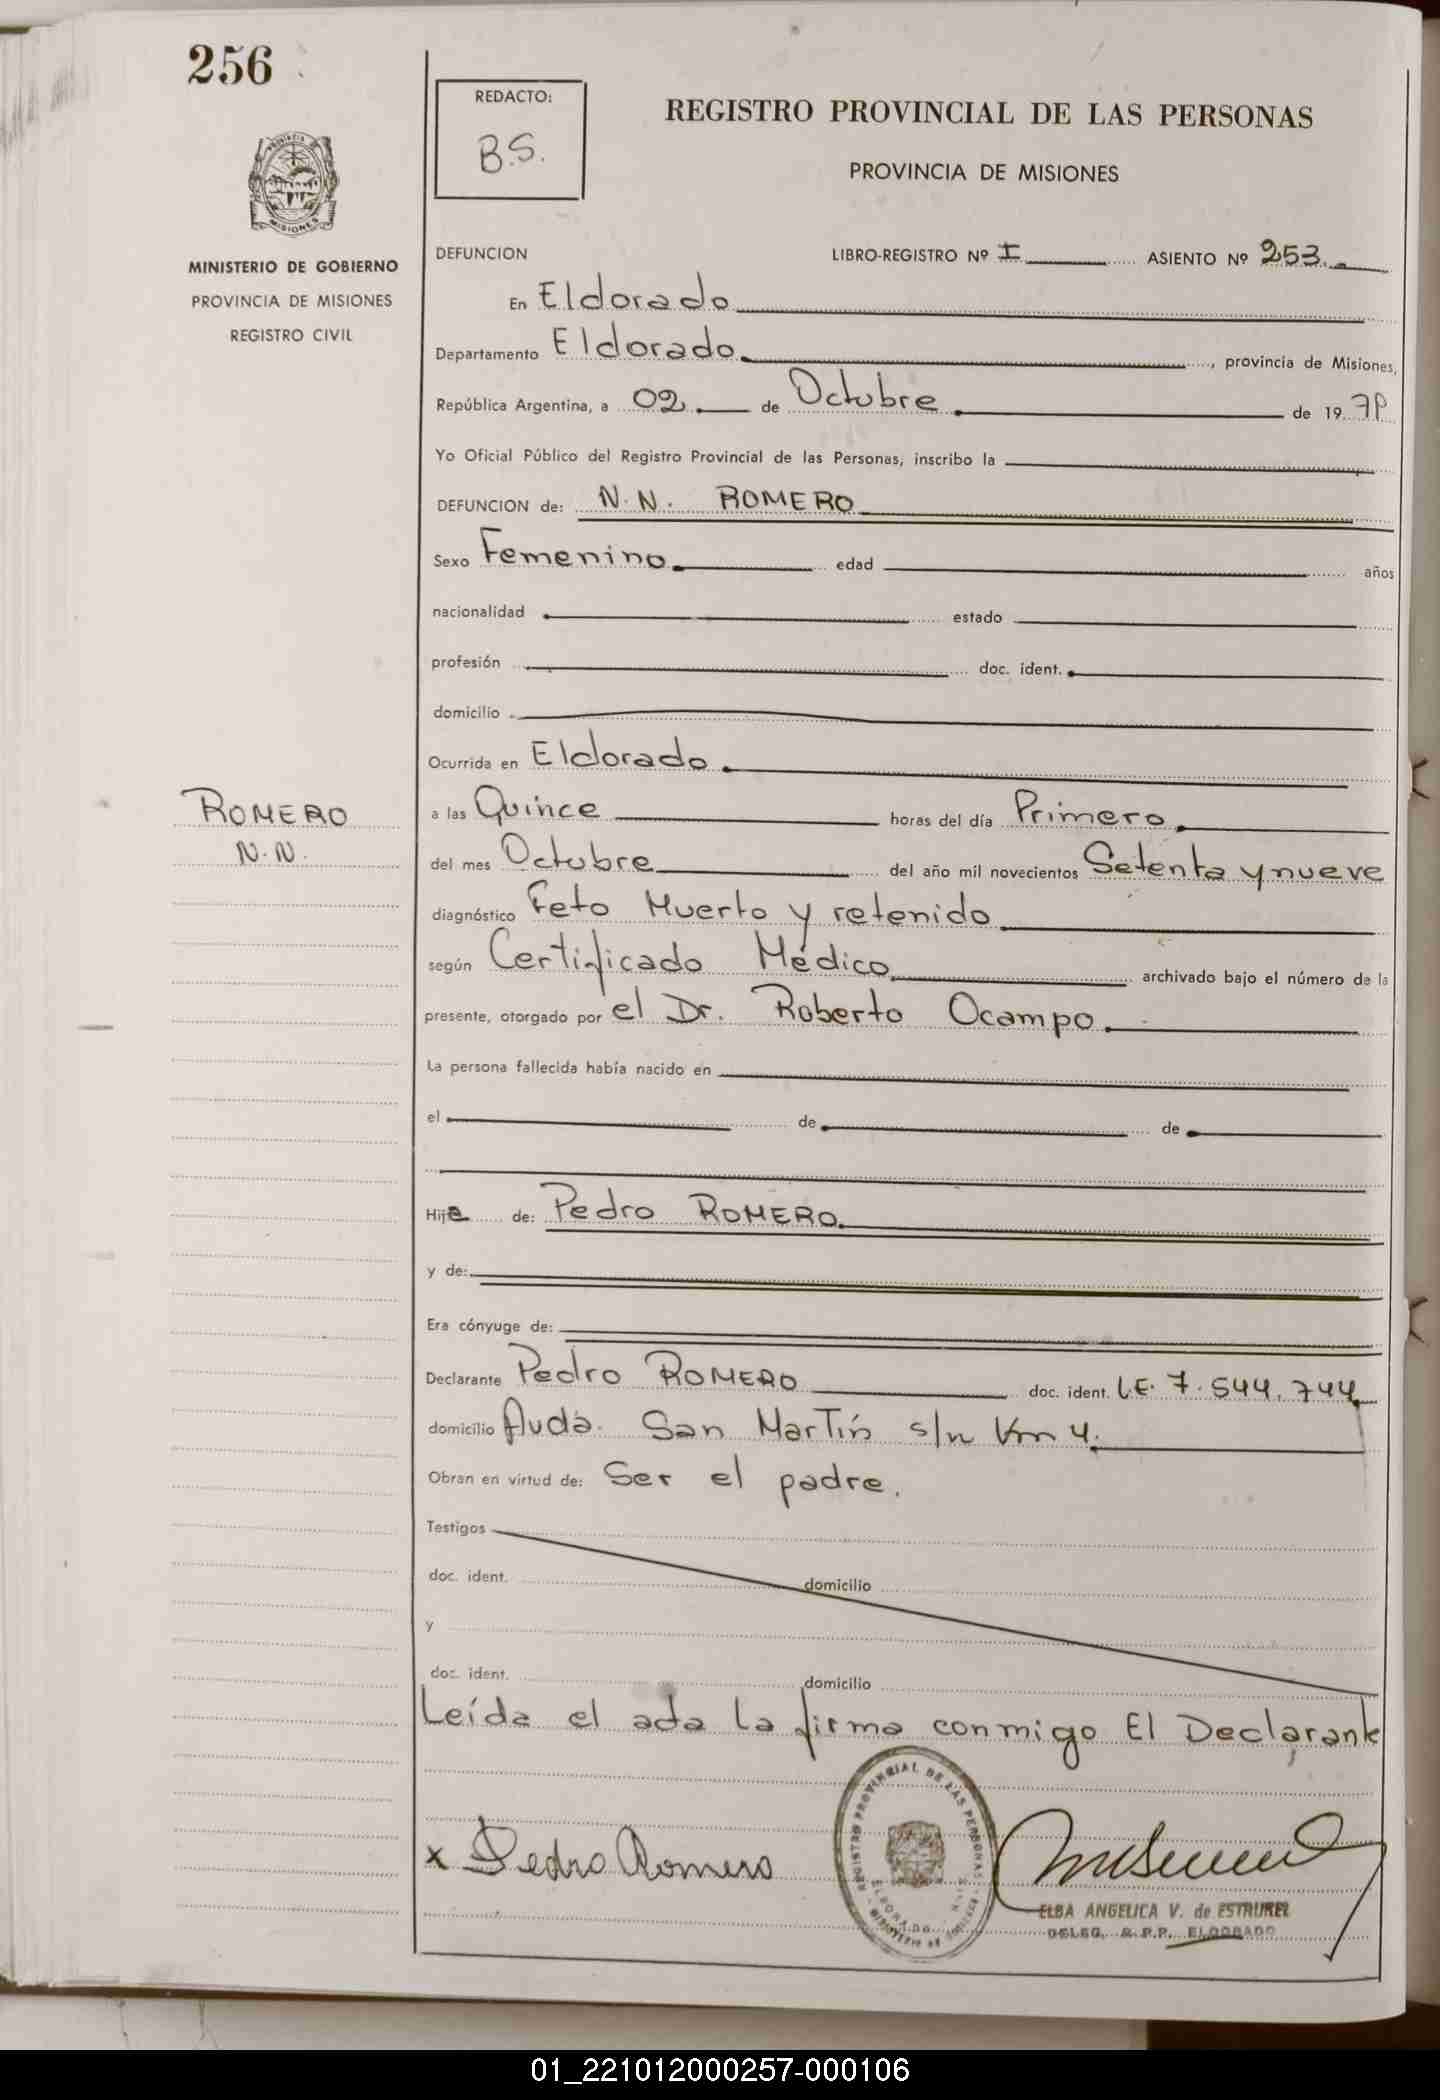 256
REDACTO:
B.S.
REGISTRO PROVINCIAL DE LAS PERSONAS
PROVINCIA DE MISIONES
MINISTERIO DE GOBIERNO
PROVINCIA DE MISIONES
REGISTRO CIVIL
DEFUNCION LIBRO-REGISTRO Nº I ASIENTO Nº 253.
En Eldorado
Departamento Eldorado, provincia de Misiones,
República Argentina, a 02 de Octubre de 1979
Yo Oficial Público del Registro Provincial de las Personas, inscribo la
DEFUNCION de: N.N. ROMERO
Sexo Femenino. edad años
nacionalidad estado
profesión doc. ident.
domicilio
Ocurrida en Eldorado.
ROMERO
N.N.
a las Quince horas del día Primero
del mes Octubre del año mil novecientos Setenta y nueve
diagnóstico Feto Muerto y retenido
según Certificado Médico archivado bajo el número de la
presente, otorgado por el Dr. Roberto Ocampo.
La persona fallecida había nacido en
el de de
Hija de: Pedro ROMERO.
y de:
Era cónyuge de:
Declarante Pedro ROMERO doc. ident. L.E. 7.544.744
domicilio Avda. San Martín s/n Km 4.
Obran en virtud de: Ser el padre.
Testigos
doc. ident. domicilio
y
doc. ident. domicilio
Leída el acta la firma conmigo El Declarante
x Pedro Romero
REGISTRO PROVINCIAL DE LAS PERSONAS
ELDORADO
ELBA ANGELICA V. de ESTRUREL
DELEG. R.P.P. ELDORADO
01_221012000257-000106